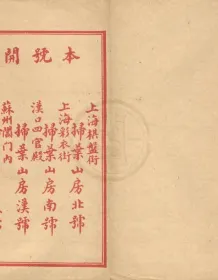 本號開
上海棋盤街
掃葉山房北號
上海彩衣街
掃葉山房南號
漢口四官殿
掃葉山房漢號
蘇州閶門內